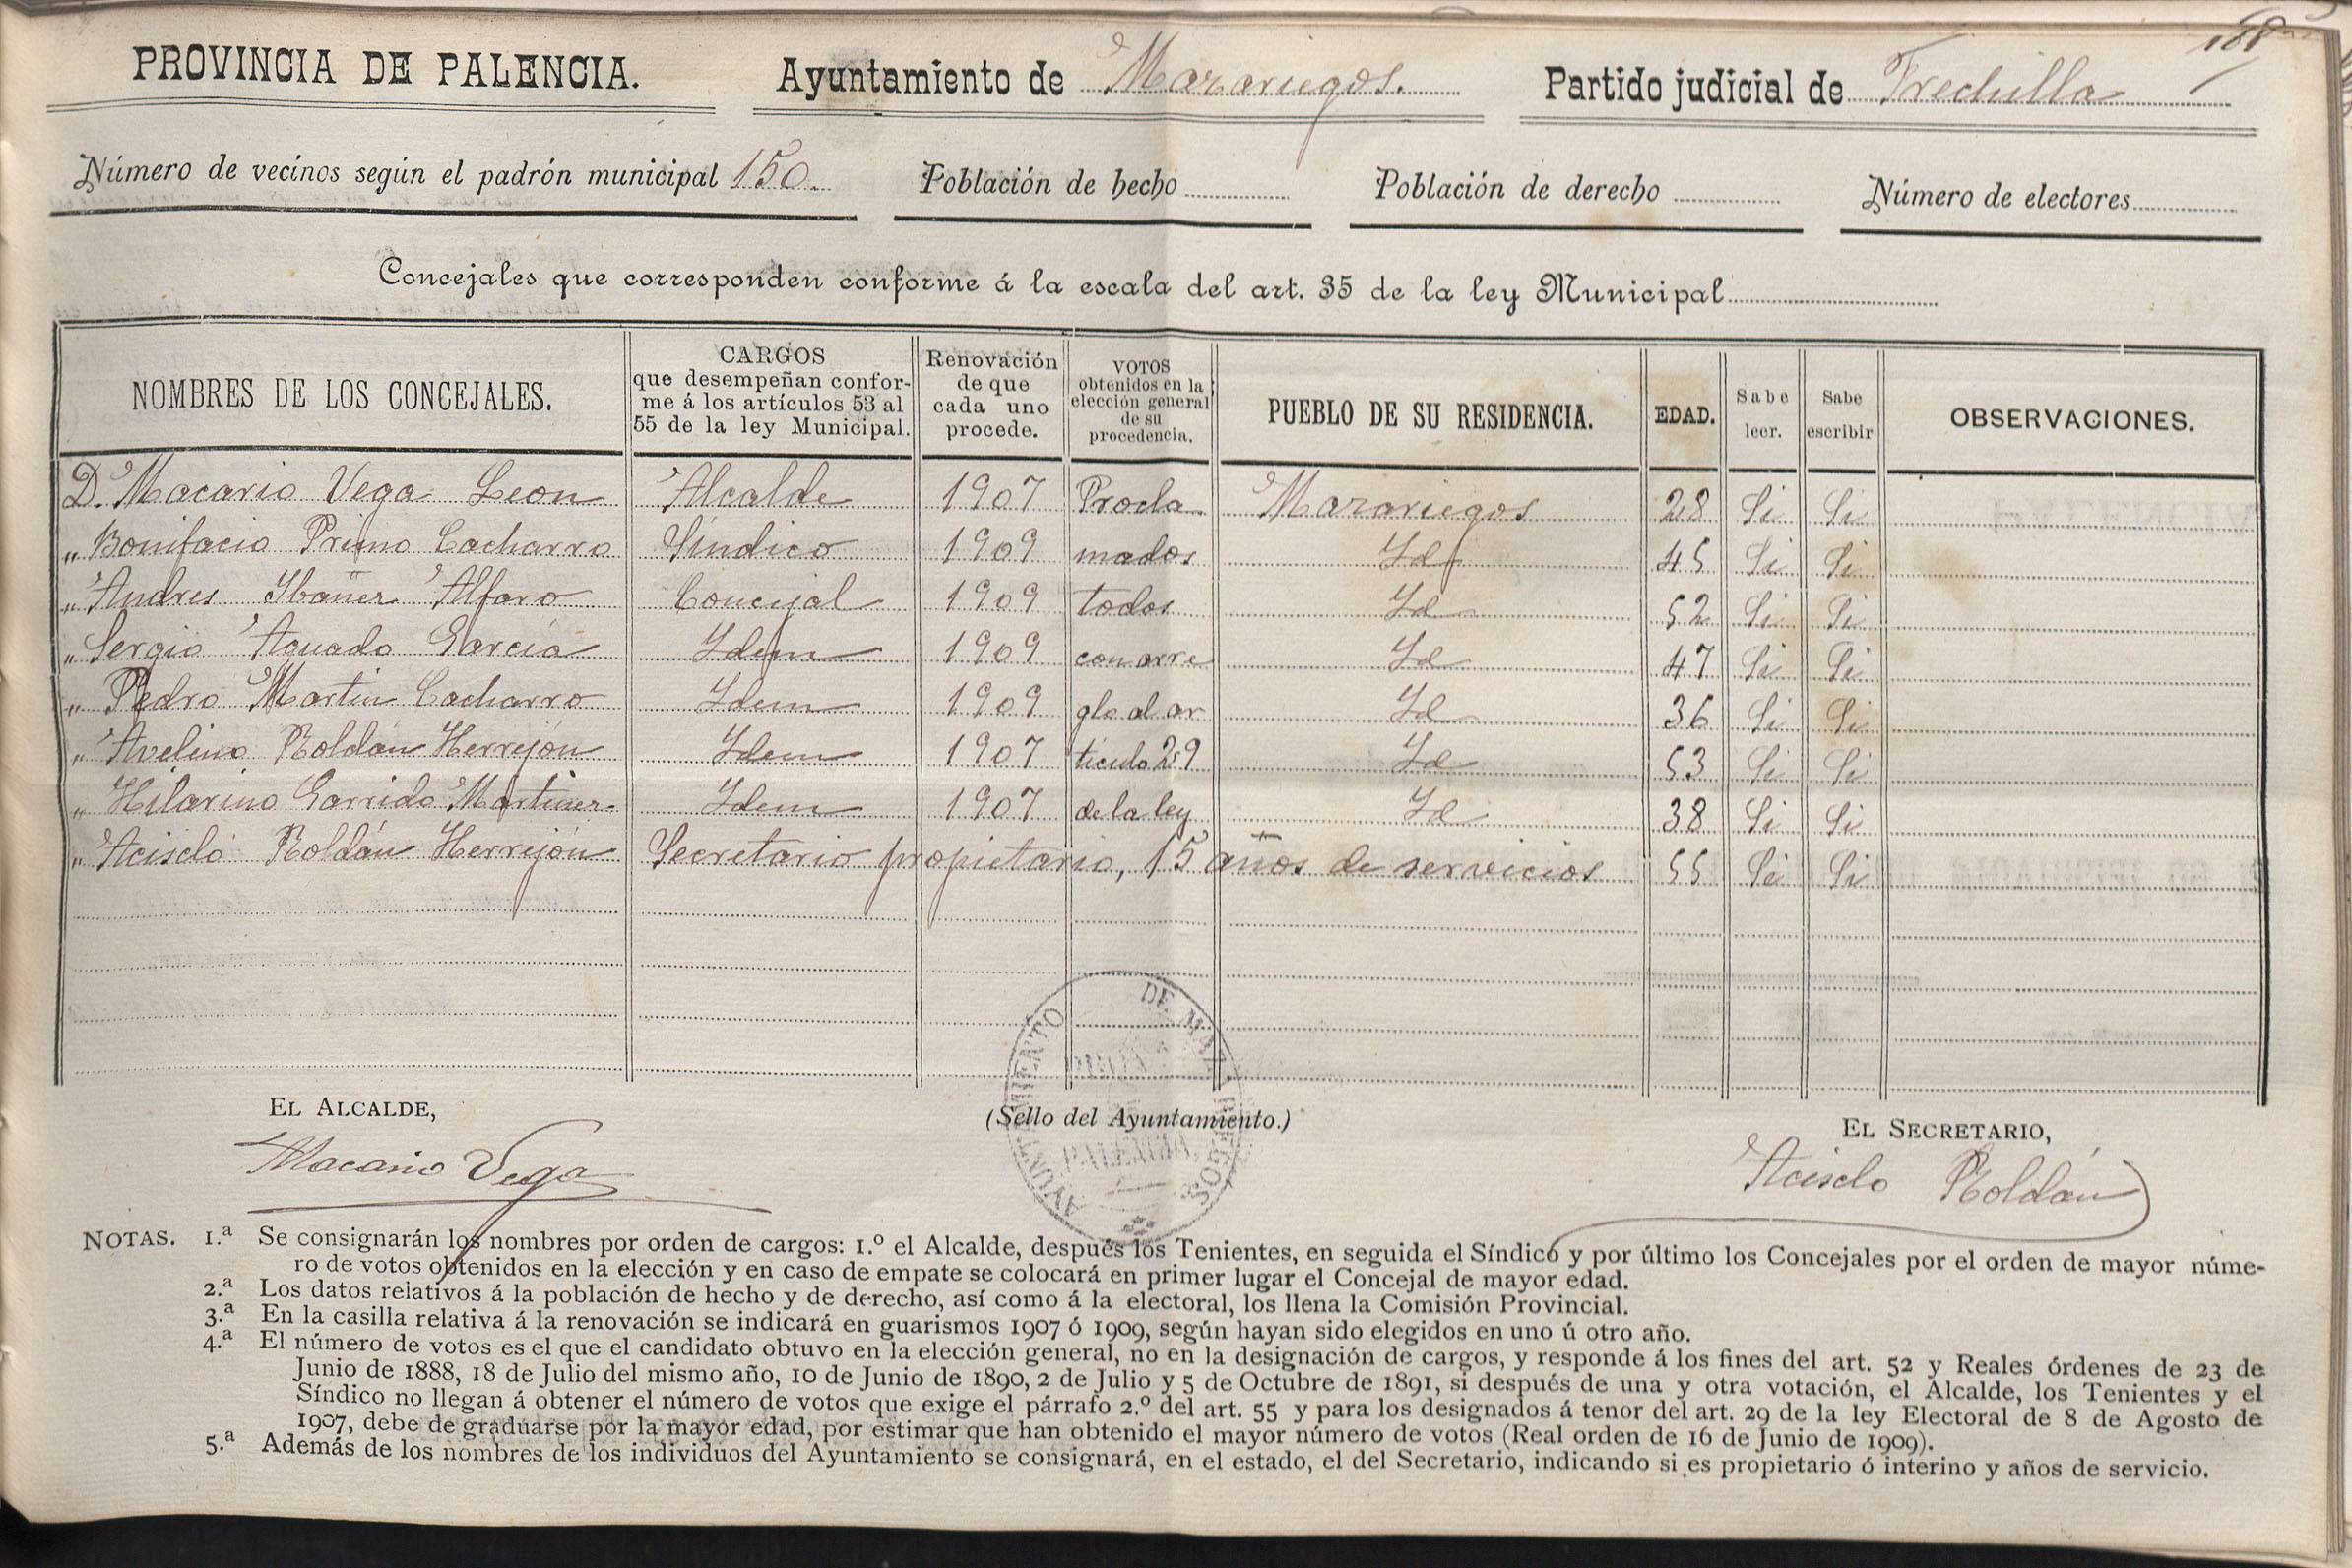 188
PROVINCIA DE PALENCIA. Ayuntamiento de Mazariegos. Partido judicial de Frechilla
Número de vecinos según el padrón municipal 150. Población de hecho Población de derecho Número de electores
Concejales que corresponden conforme á la escala del art. 35 de la ley Municipal
NOMBRES DE LOS CONCEJALES. CARGOS que desempeñan confor- me á los artículos 53 al 55 de la ley Municipal. Renovación de que cada uno procede. VOTOS obtenidos en la elección general de su procedencia. PUEBLO DE SU RESIDENCIA. EDAD. Sabe leer. Sabe escribir OBSERVACIONES.
D. Macario Vega Leon Alcalde 1907 Procla Mazariegos 28 Si Si
„ Bonifacio Primo Cacharro Síndico 1909 mados Id 45 Si Si
„ Andres Ibañez Alfaro Concejal 1909 todos Id 52 Si Si
„ Sergio Aguado García Idem 1909 con arre Id 47 Si Si
„ Pedro Martin Cacharro Idem 1909 glo al ar Id 36 Si Si
„ Avelino Roldán Herrejón Idem 1907 tículo 29 Id 53 Si Si
„ Hilarino Garrido Martinez Idem 1907 de la ley Id 38 Si Si
„ Acisclo Roldán Herrejón Secretario propietario, 15 años de servicios 55 Si Si
EL ALCALDE, (Sello del Ayuntamiento.) EL SECRETARIO,
AYUNTAMIENTO DE MAZARIEGOS
Macario Vega Acisclo Roldán
NOTAS. 1.ª Se consignarán los nombres por orden de cargos: 1.º el Alcalde, después los Tenientes, en seguida el Síndico y por último los Concejales por el orden de mayor núme-
ro de votos obtenidos en la elección y en caso de empate se colocará en primer lugar el Concejal de mayor edad.
2.ª Los datos relativos á la población de hecho y de derecho, así como á la electoral, los llena la Comisión Provincial.
3.ª En la casilla relativa á la renovación se indicará en guarismos 1907 ó 1909, según hayan sido elegidos en uno ú otro año.
4.ª El número de votos es el que el candidato obtuvo en la elección general, no en la designación de cargos, y responde á los fines del art. 52 y Reales órdenes de 23 de
Junio de 1888, 18 de Julio del mismo año, 10 de Junio de 1890, 2 de Julio y 5 de Octubre de 1891, si después de una y otra votación, el Alcalde, los Tenientes y el
Síndico no llegan á obtener el número de votos que exige el párrafo 2.º del art. 55 y para los designados á tenor del art. 29 de la ley Electoral de 8 de Agosto de
1907, debe de graduarse por la mayor edad, por estimar que han obtenido el mayor número de votos (Real orden de 16 de Junio de 1909).
5.ª Además de los nombres de los individuos del Ayuntamiento se consignará, en el estado, el del Secretario, indicando si es propietario ó interino y años de servicio.